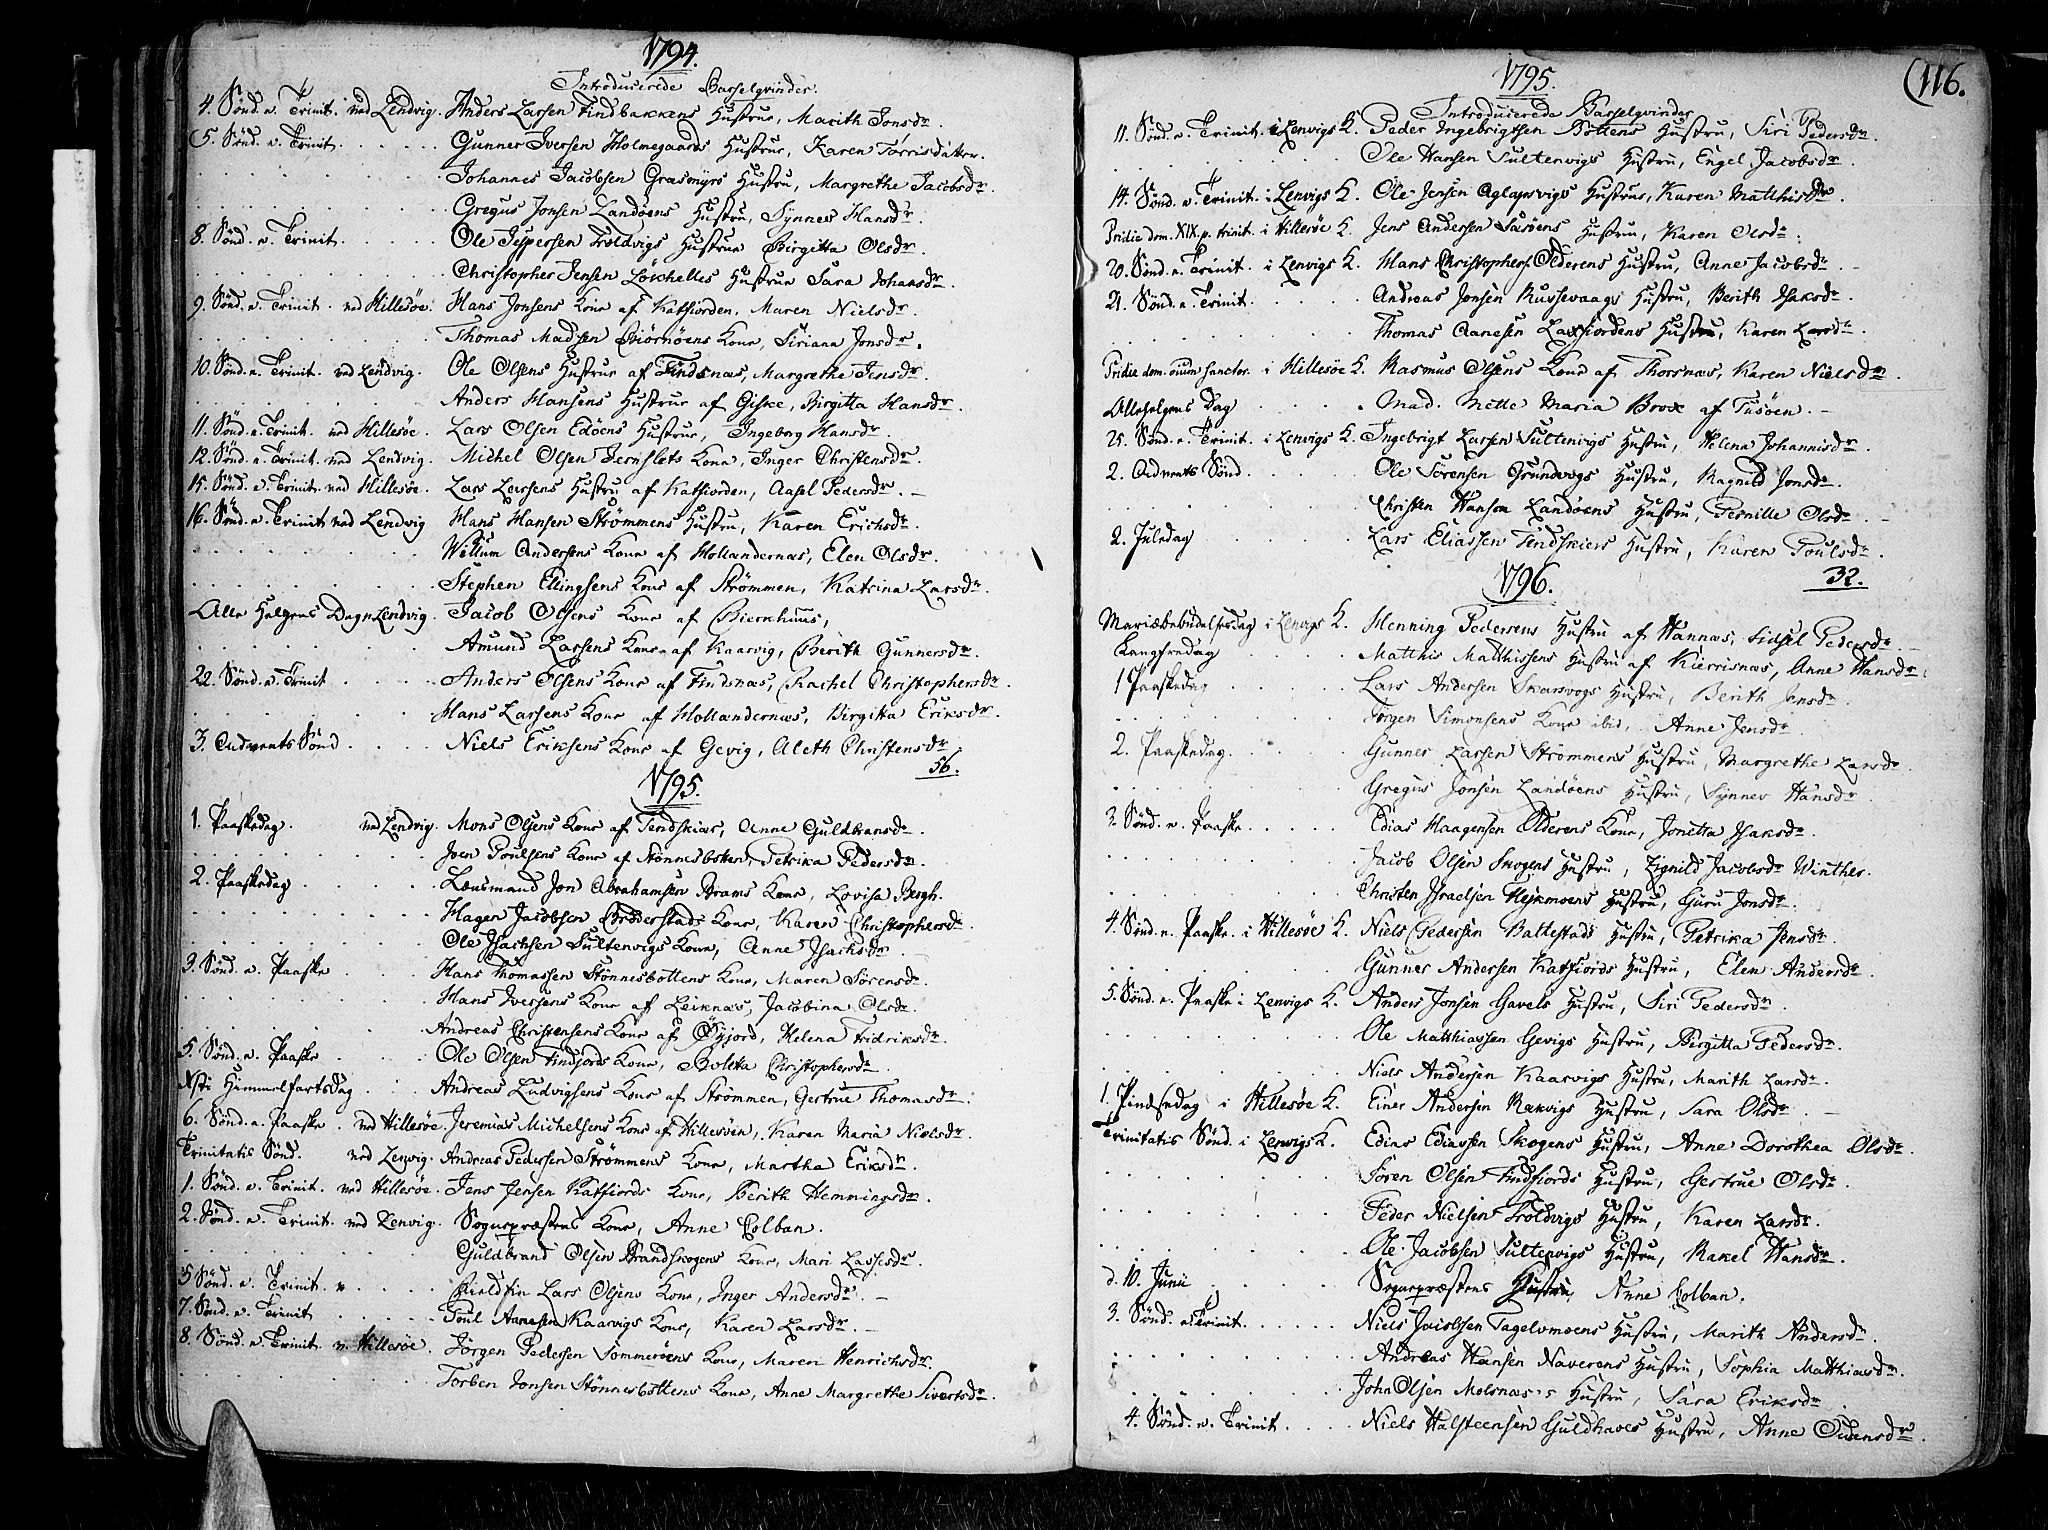 1794.
Introducerede Barselqvinder.
4. Sønd. e. Trinit. ved Lendvig. Anders Larsen Findbakkens Hustrue, Marith Jonsdr.
(5. Sønd. e. Trinit. Gunner Iversen Holmegaards Hustrue, Karen Torrisdatter.
Johannes Jacobsen Grasmyrs Hustru, Margrethe Jacobsdr.
Gregus Jonsen Landøens Hustru, Synnes Hansdr.
8. Sønd. e. Trinit. Ole Jespersen Troldvigs Hustrue Birgitta Olsdr.
Christopher Jensen Løkhelles Hustrue Sara Johansdr.
9. Sønd. e. Trinit. ved Hillesøe. Hans Jonsens Kone af Katfiorden, Maren Nielsdr.
Thomas Madsen Biørnøens Kone, Siriana Jonsdr.
10. Sønd. e. Trinit. ved Lendvig. Ole Olsens Hustrue af Findsnæs, Margrethe Jensdr.
Anders Hansens Hustrue af Giske, Birgitta Hansdr.
11. Sønd. e. Trinit. ved Hillesøe. Lars Olsen Edøens Hustrue, Ingeborg Hansdr.
12. Sønd. e. Trinit. ved Lendvig. Michel Olsen Jernslets Kone, Inger Christensdr.
15. Sønd. e. Trinit. ved Hillesøe. Lars Larsens Hustru af Katfiorden, Aasel Pedersdr.
16. Sønd. e. Trinit ved Lendvig Hans Hansen Strømmens Hustru, Karen Erichsdr.
Willum Andersens Kone af Hollandernæs, Elen Olsdr.
Stephen Ellingsens Kone af Strømmen, Katrina Larsdr.
Alle Helgens Dag v. Lendvig. Jacob Olsens Kone af Biernhuus,
Amund Larsens Kone af Kaarvig, Berith Gunnersdr.
22. Sønd. e. Trinit Anders Olsens Kone af Findsnæs, Rachel Christophersdr.
Hans Larsens Kone af Hollandernæs, Birgitta Eriksdr.
3. Advents Sønd. Niels Eriksens Kone af Gevig, Aleth Christensdr.
56.
1795.
1. Paaskedag. ved Lendvig. Mons Olsens Kone af Tendskiær, Anne Guldbransdr.
Joen Poulsens Kone af Stønnesbotten, Petrika Pedersdr.
2. Paaskedag Lensmand Jon Abrahamsen Brams Kone, Lovisa Bergh.
Hagen Jacobsen Grøderstads Kone, Karen Christophersdr.
Ole Isachsen Sultenvigs Kone, Anne Isachsdr.
3. Sønd. e. Paaske Hans Thomassen Stønnesbottens Kone, Maren Sørensdr.
Hans Iversens Kone af Leiknæs, Jacobina Olsdr.
Andreas Christensens Kone af Øyjord, Helena Fridriksdr.
5. Sønd. e. Paaske Ole Olsen Findjords Kone, Boleta Christophersdr.
Xsti Himmelfartsdag Andreas Ludvigsens Kone af Strømmen, Gertrue Thomasdr.
6. Sønd. e. Paaske. ved Hillesøe. Jeremias Michelsens Kone af Hillesøen, Karen Maria Nielsdr.
Trinitatis Sønd. ved Lenvig. Andreas Pedersen Strømmens Kone, Martha Eriksdr.
1. Sønd. e. Trinit. ved Hillesøe. Jens Jensen Katfiords Kone, Berith Hemmingsdr.
2. Sønd. e. Trinit. ved Lenvig. Sogneprestens Kone, Anne Colban.
Guldbrand Olsen Brandskogens Kone, Mari Larsdr.
5 Sønd. e. Trinit. Lars Olsens Kone, Inger Andersdr.
7. Sønd. e. Trinit Poul Aanesen Kaarvigs Kone, Karen Larsdr.
8. Sønd. e. Trinit. v. Hillesøe. Jørgen Pedersen Sommerøens Kone, Maren Henrichsdr.
Torben Jonsen Stønnesbottens Kone, Anne Margrethe Sivertsdr.
(116.
1795.
Introducerede Barselqvinder
11. Sønd. e. Trinit. i Lenvigs K. Peder Ingebrigtsen Bottens Hustru, Siri Pedersdr.
Ole Hansen Sultenvigs Hustru, Engel Jacobsdr.
14. Sønd. e. Trinit. i Lenvigs K. Ole Jensen Aglapsvigs Hustrue, Karen Matthisdr.
Pridie dom. XIX. p. trinit. i Hillesøe K. Jens Andersen Sasøens Hustru, Karen Olsdr.
20. Sønd. e. Trinit. i Lenvigs K. Hans Christophers. Olderens Hustru, Anne Jacobsdr.
21. Sønd. e. Trinit. Andreas Jonsen Russevaags Hustru, Berith Isaksdr.
Thomas Aanesen Laxfiordens Hustru, Karen Larsdr.
Pridie dom. oium sanctor. i Hillesøe K. Rasmus Olsens Kone af Thorsnæs, Karen Nielsdr.
Allehelgens Dag Mad. Mette Maria Brox af Tusøen.
25. Sønd. e. Trinit. i Lenvigs K. Ingebrigt Larsen Sultenvigs Hustru, Helena Johannisdr.
2. Advents Sønd. Ole Sørensen Grundvogs Hustru, Magnild Jonsdr.
Christen Hansen Landøens Hustru, Pernille Olsdr.
2. Juledag Lars Eliassen Tendskiers Hustru, Karen Poulsdr.
32.
1796.
Mariæ Bebudelsesdag i Lenvigs K. Henning Pedersens Hustru af Hannæs, Sidsel Pedersdr.
Langfredag Matthis Matthissens Hustru af Kierrisnæs, Anne Hansdr.
1 Paaskedag Lars Andersen Skarsvogs Hustru, Berith Jensdr.
Jørgen Simonsens Kone ibid, Anne Jensdr.
2. Paaskedag. Gunner Larsen Strømmens Hustru, Margrethe Larsdr.
Gregus Jonsen Landøens Hustru, Synnev Hansdr.
3. Sønd. e. Paaske. Edias Haagensen Olderens Kone, Jonetta Isaksdr.
Jacob Olsen Skogens Hustru, Zignild Jacobsdr Winther.
Christen Israelsen Hejkmoens Hustru, Guru Jonsdr.
4. Sønd. e. Paaske. i Hillesøe K. Niels Pedersen Baltestads Hustru, Petrika Jensdr.
Gunner Andersen Katfiords Hustru, Elen Andersdr.
5. Sønd. e. Paaske i Lenvigs K. Anders Jonsen Gavels Hustru, Siri Pedersdr.
Ole Matthiassen Gevigs Hustru, Birgitta Pedersdr.
Niels Andersen Kaarvigs Hustru, Marith Larsdr.
1. Pindsedag i Hillesøe K. Einer Andersen Rækvigs Hustru, Sara Olsdr.
Trinitatis Sønd. i Lenvigs K. Edias Ediassen Skogens Hustru, Anne Dorothea Olsdr.
Søren Olsen Findfiords Hustru, Gertrue Olsdr.
Peder Nielsen Troldvigs Hustru, Karen Larsdr.
Ole Jacobsen Sultenvigs Hustru, Rakel Hansdr.
d. 10. Junii Sogneprestens Hustru Anne Colban.
3. Sønd. e. Trinit. Niels Jacobsen Tagelvmoens Hustru, Marith Andersdr.
Andreas Hansen Naverens Hustru, Sophia Matthiasdr.
John Olsen Molsnæs's Hustru, Sara Eriksdr.
4. Sønd. e. Trinit. Niels Halsteensen Guldhaves Hustru, Anne Odensdr.